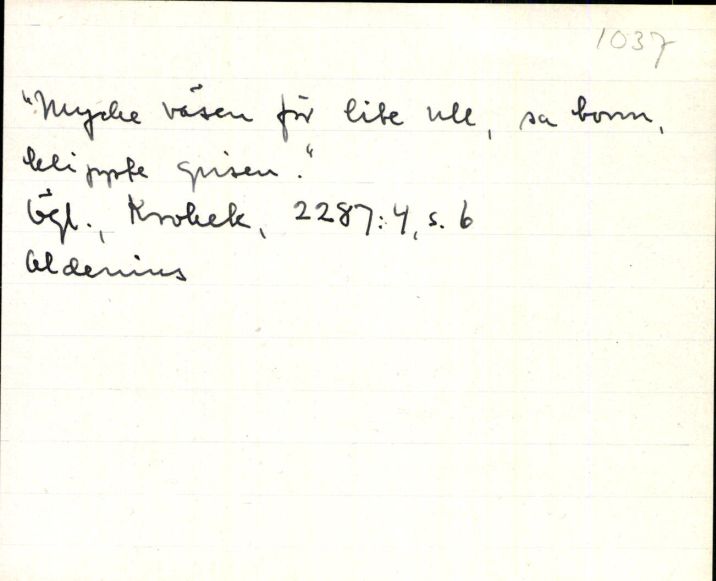 1037
"Mycke väsen för lite ull, sa bonn,
klippte grisen."
Ögl., Krokek, 2287:4, s. 6
Aldenius